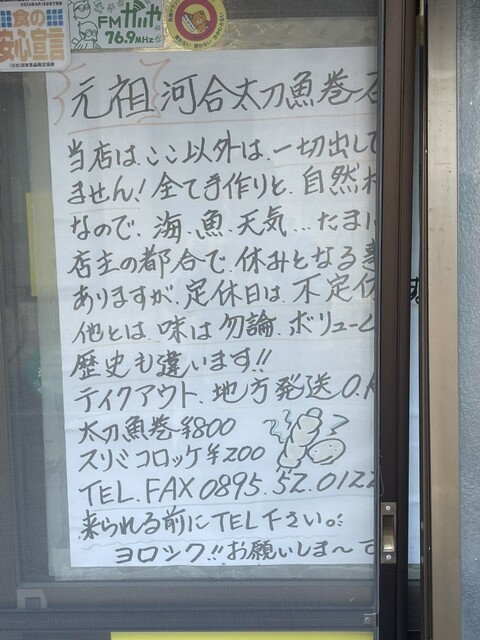 食の
安心宣言
FMがいや
76.9MHz
元祖 河合太刀魚巻
当店は、ここ以外は、一切出して
ません！全て手作りと、自然
なので、海、魚、天気…たまに
店主の都合で、休みとなる
ありますが、定休日は、不定休
他とは、味は勿論、ボリューム
歴史も違います!!
テイクアウト、地方発送O.K
太刀魚巻¥800
スリミコロッケ¥200
TEL.FAX 0895.52.0122
来られる前にTEL下さい。
ヨロシク!!お願いしま〜す